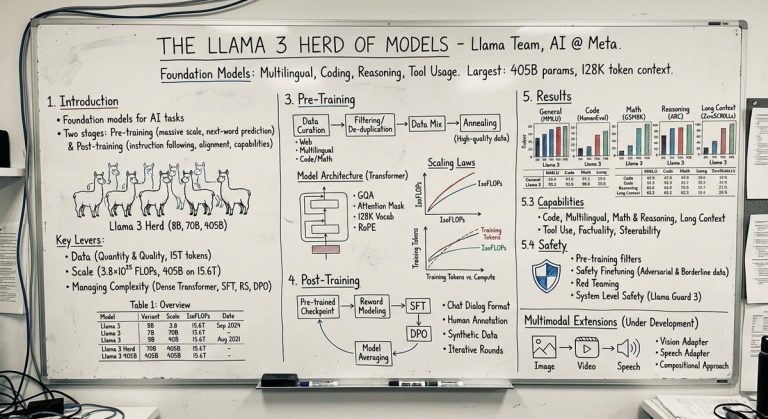 THE LLAMA 3 HERD OF MODELS – Llama Team, AI @ Meta.
Foundation Models: Multilingual, Coding, Reasoning, Tool Usage. Largest: 405B params, 128K token context.
1. Introduction
• Foundation models for AI tasks
• Two stages: Pre-training (massive scale, next-word prediction)
& Post-training (instruction following, alignment, capabilities)
Llama 3 Herd (8B, 70B, 405B)
Key Levers:
• Data (Quantity & Quality, 15T tokens)
• Scale (3.8×10²⁵ FLOPs, 405B on 15.6T)
• Managing Complexity (Dense Transformer, SFT, RS, DPO)
Table 1: Overview
Model Variant Scale IzeFLOPs Date
Llama 3 8B 3.8 15.6T Sep 2024
Llama 3 7B 70B 15.6T –
Llama 3 9B 40B 15.6T Aug 2021
Llama 3 Herd 70B 405B 15.6T –
Llama 3 405B 405B 405B 15.6T –
3. Pre-Training
Data Curation
Filtering/ De-duplication
Data Mix
Annealing
(High-quality data)
• Web
• Multilingual
• Code/Math
Model Architecture (Transformer)
• GQA
• Attention Mask
• 128K Vocab
• RoPE
Scaling Laws
IsoFLOPs
IsoFLOPs
IsoFLOPs
Training Tokens
Training Tokens
IsoFLOPs
Training Tokens vs. Compute
4. Post-Training
Pre-trained Checkpoint
Reward Modeling
SFT
DPO
Model Averaging
• Chat Dialog Format
• Human Annotation
• Synthetic Data
• Iterative Rounds
5. Results
General (MMLU)
Code (HomanEvol)
Math (GSM8K)
Reasoning (ARC)
Long Context (ZeroSCROLLs)
MMLU
General
Llama 3
MMLU
Code
Code
Reasoning
Long Context
5.3 Capabilities
• Code, Multilingual, Math & Reasoning, Long Context
• Tool Use, Factuality, Steerability
5.4 Safety
• Pre-training filters
• Safety Finetuning (Adversarial & Borderline data)
• Red Teaming
• System Level Safety (Llama Guard 3)
Multimodal Extensions (Under Development)
Image
Video
Speech
• Vision Adapter
• Speech Adapter
• Compositional Approach